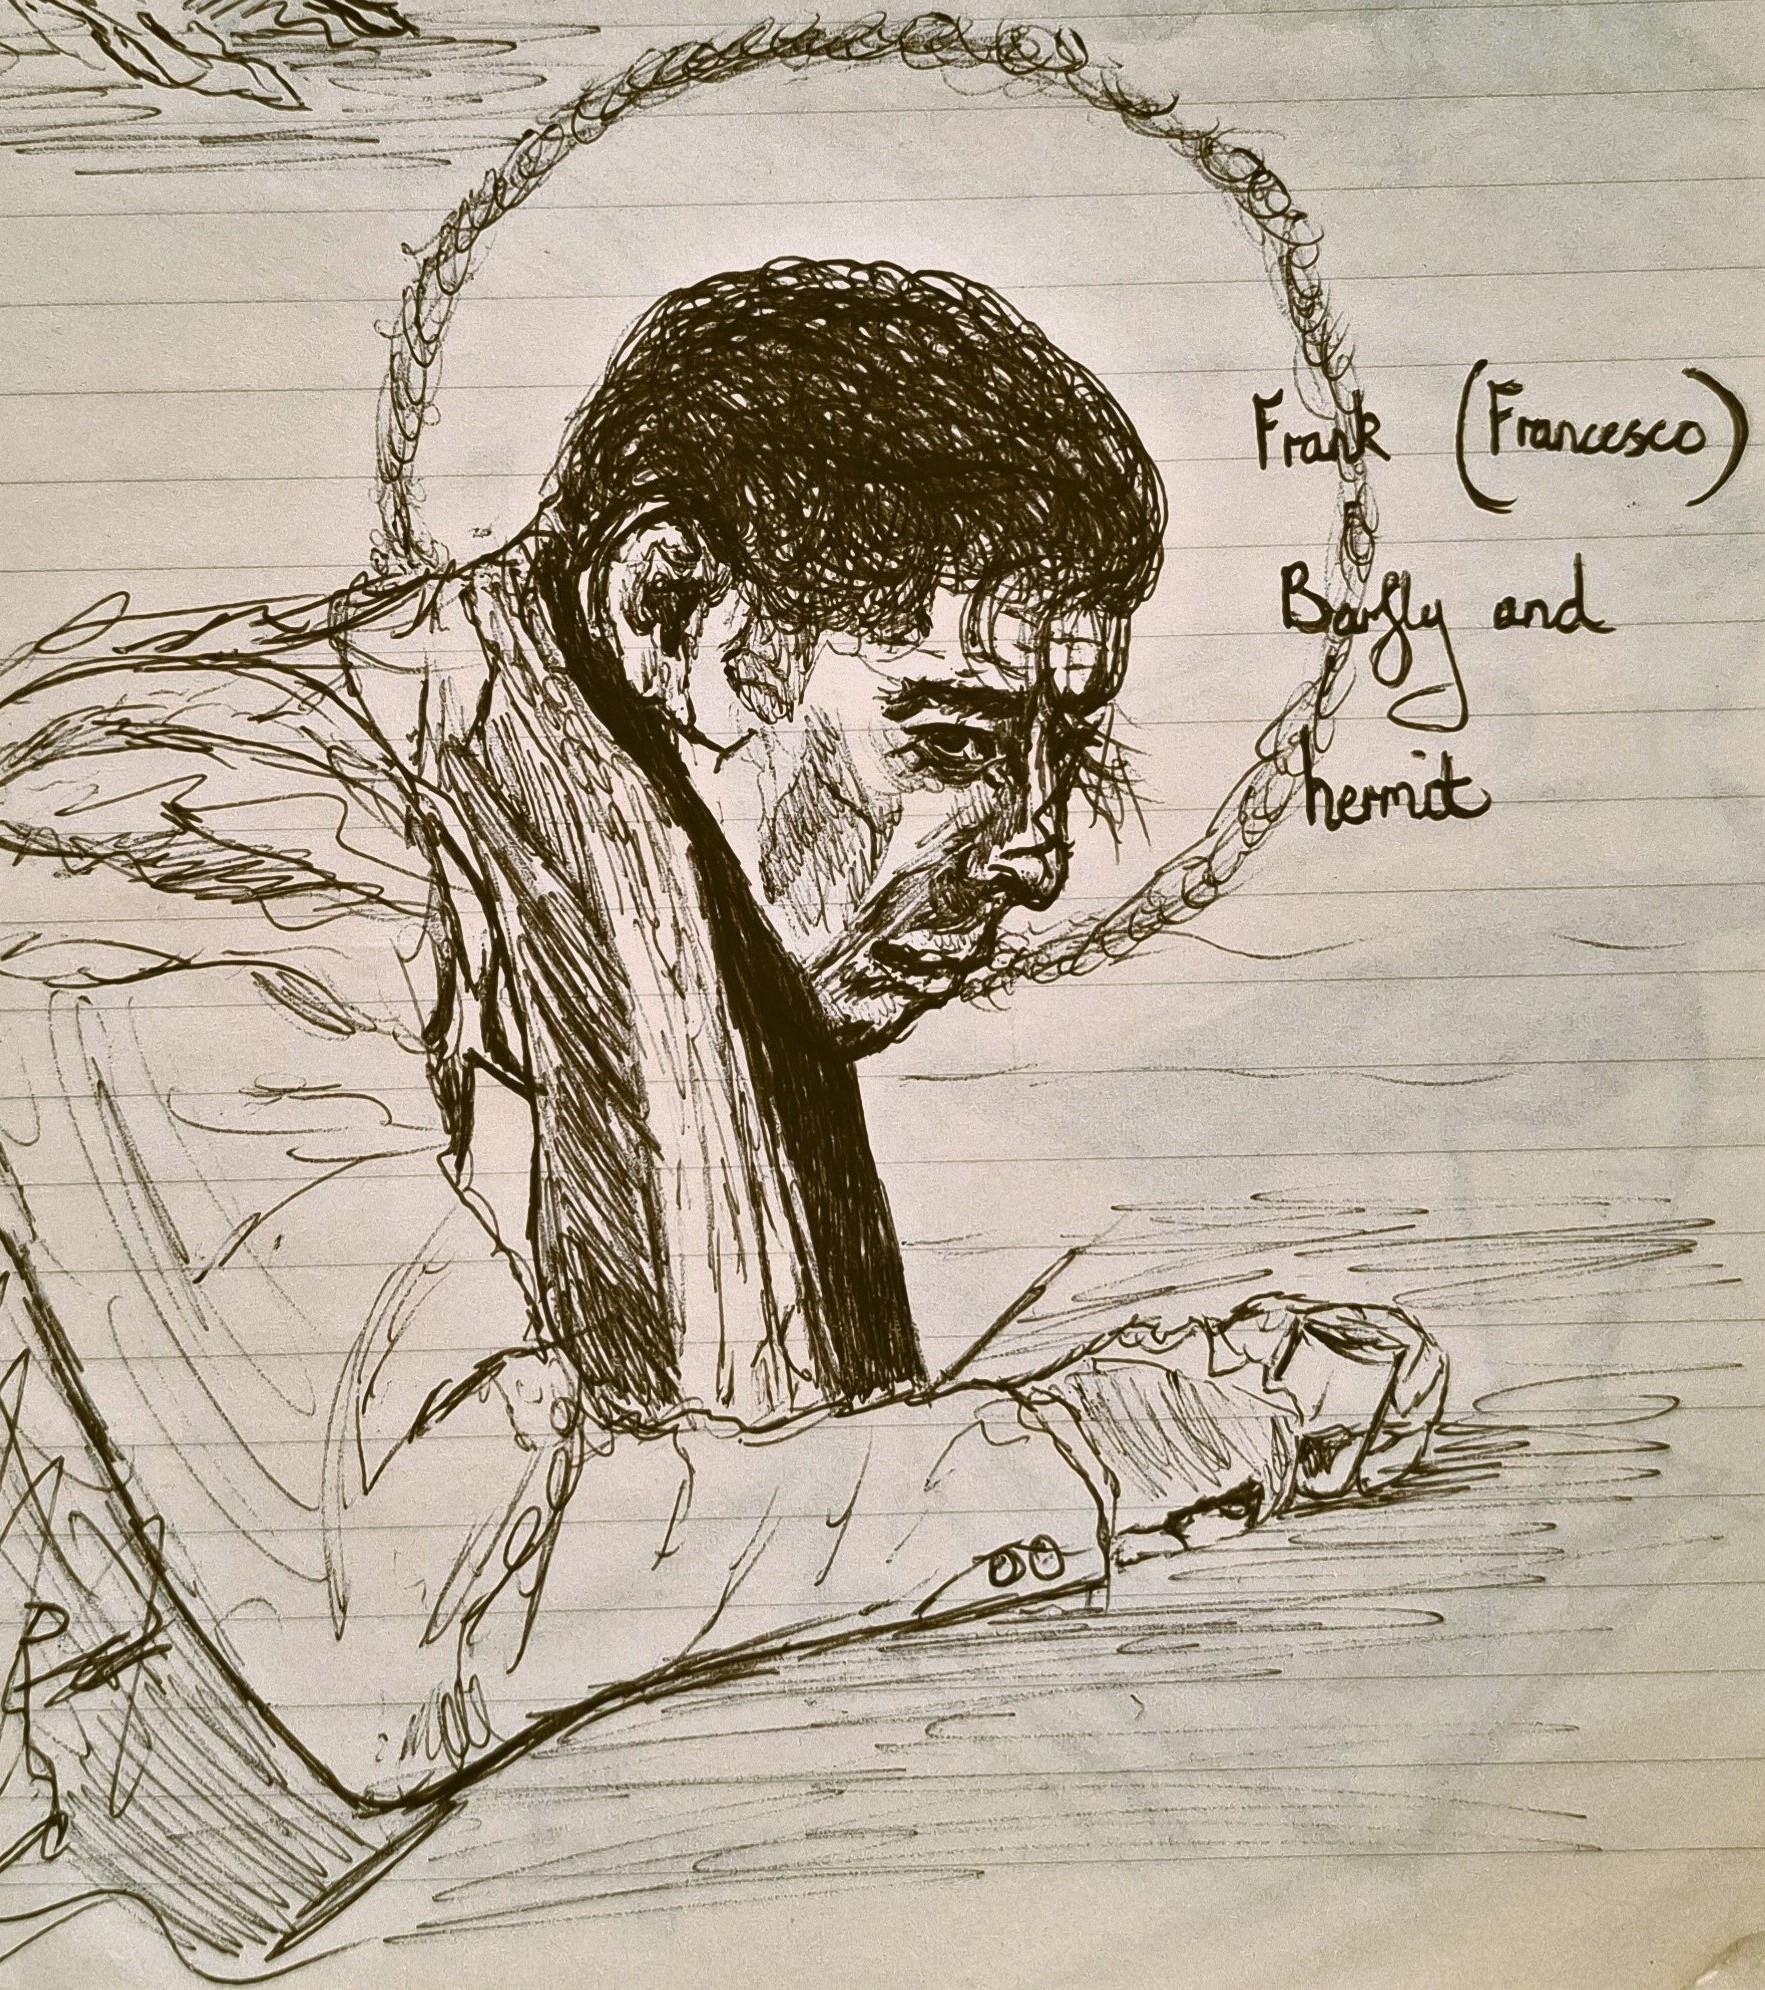 Frank (Francesco)
Barfly and
hermit